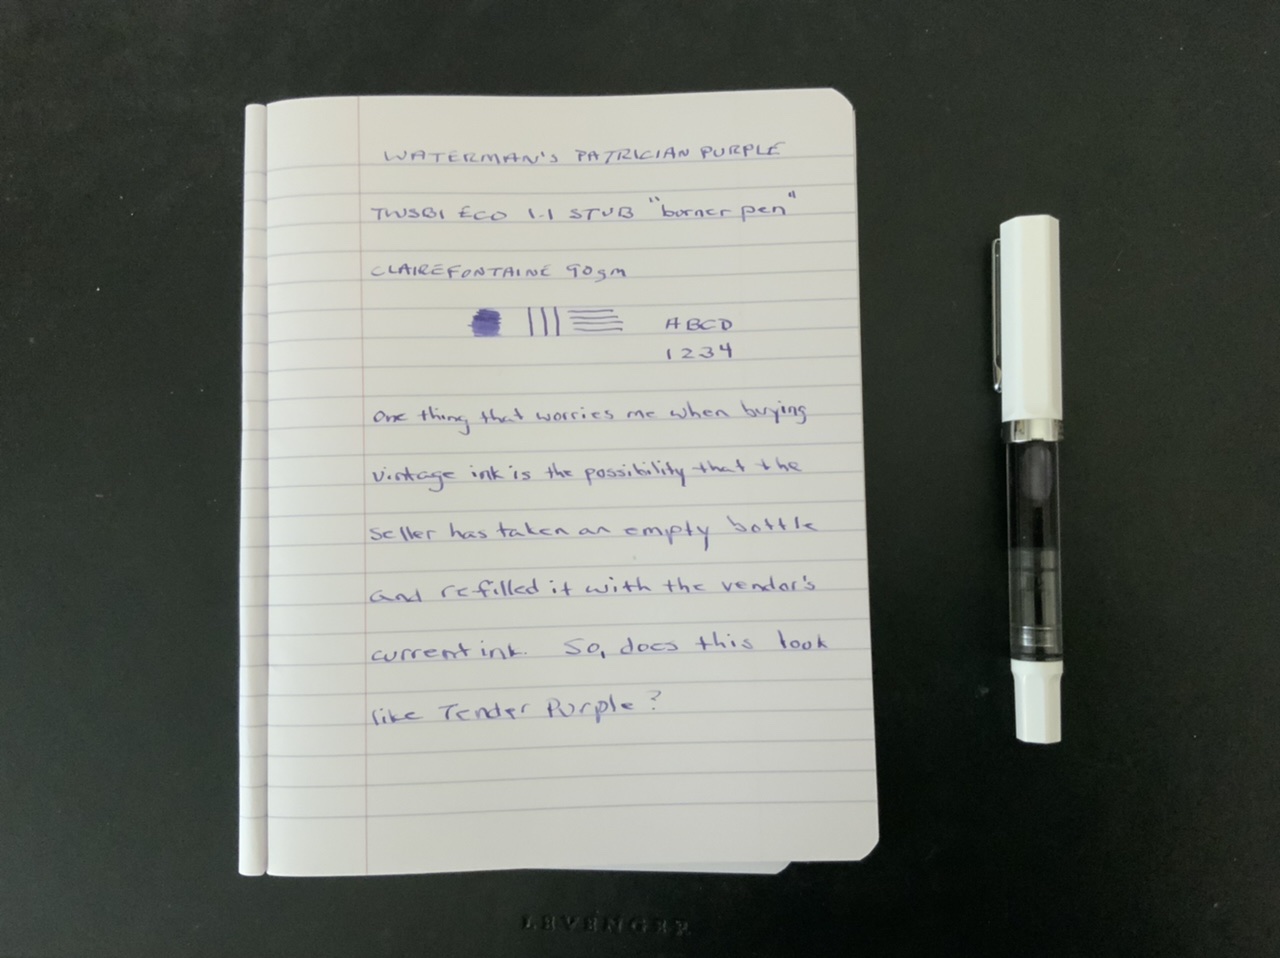 WATERMAN'S PATRICIAN PURPLE
TWSBI ECO 1.1 STUB "burner pen"
CLAIREFONTAINE 90gm
ABCD
1234
One thing that worries me when buying
vintage ink is the possibility that the
seller has taken an empty bottle
and refilled it with the vendor's
current ink. So, does this look
like Tender Purple?
LEVENGER